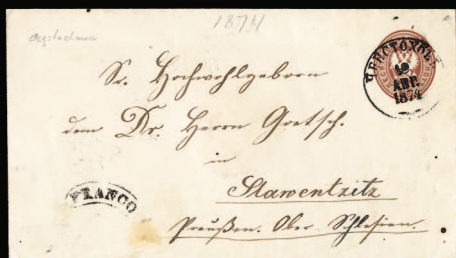 1874
Czestochowa
ЧЕНСТОХОВЪ
АВГ.
1874
Sr. Hochwohlgeboren
dem Dr. Herrn Gretsch.
in
Slawentzitz
Preußen. Ober Schlesien.
FRANCO